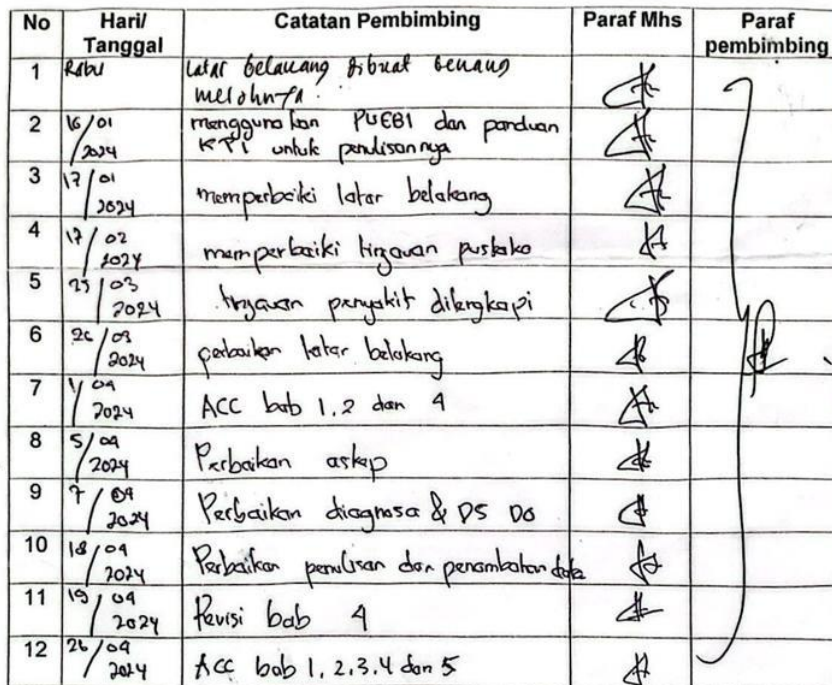 No Hari/ Tanggal Catatan Pembimbing Paraf Mhs Paraf pembimbing
1 Rabu Latar belakang dibuat benang
merahnya
2 16/01 2024 menggunakan PUEBI dan panduan
KTI untuk penulisannya
3 17/01 2024 memperbaiki latar belakang
4 17/02 2024 memperbaiki tinjauan pustaka
5 25/03 2024 tinjauan penyakit dilengkapi
6 26/03 2024 perbaikan latar belakang
7 1/04 2024 ACC bab 1, 2 dan 4
8 5/04 2024 Perbaikan askep
9 7/04 2024 Perbaikan diagnosa & DS DO
10 18/04 2024 Perbaikan penulisan dan penambahan data
11 19/04 2024 Revisi bab 4
12 26/04 2024 ACC bab 1, 2, 3, 4 dan 5